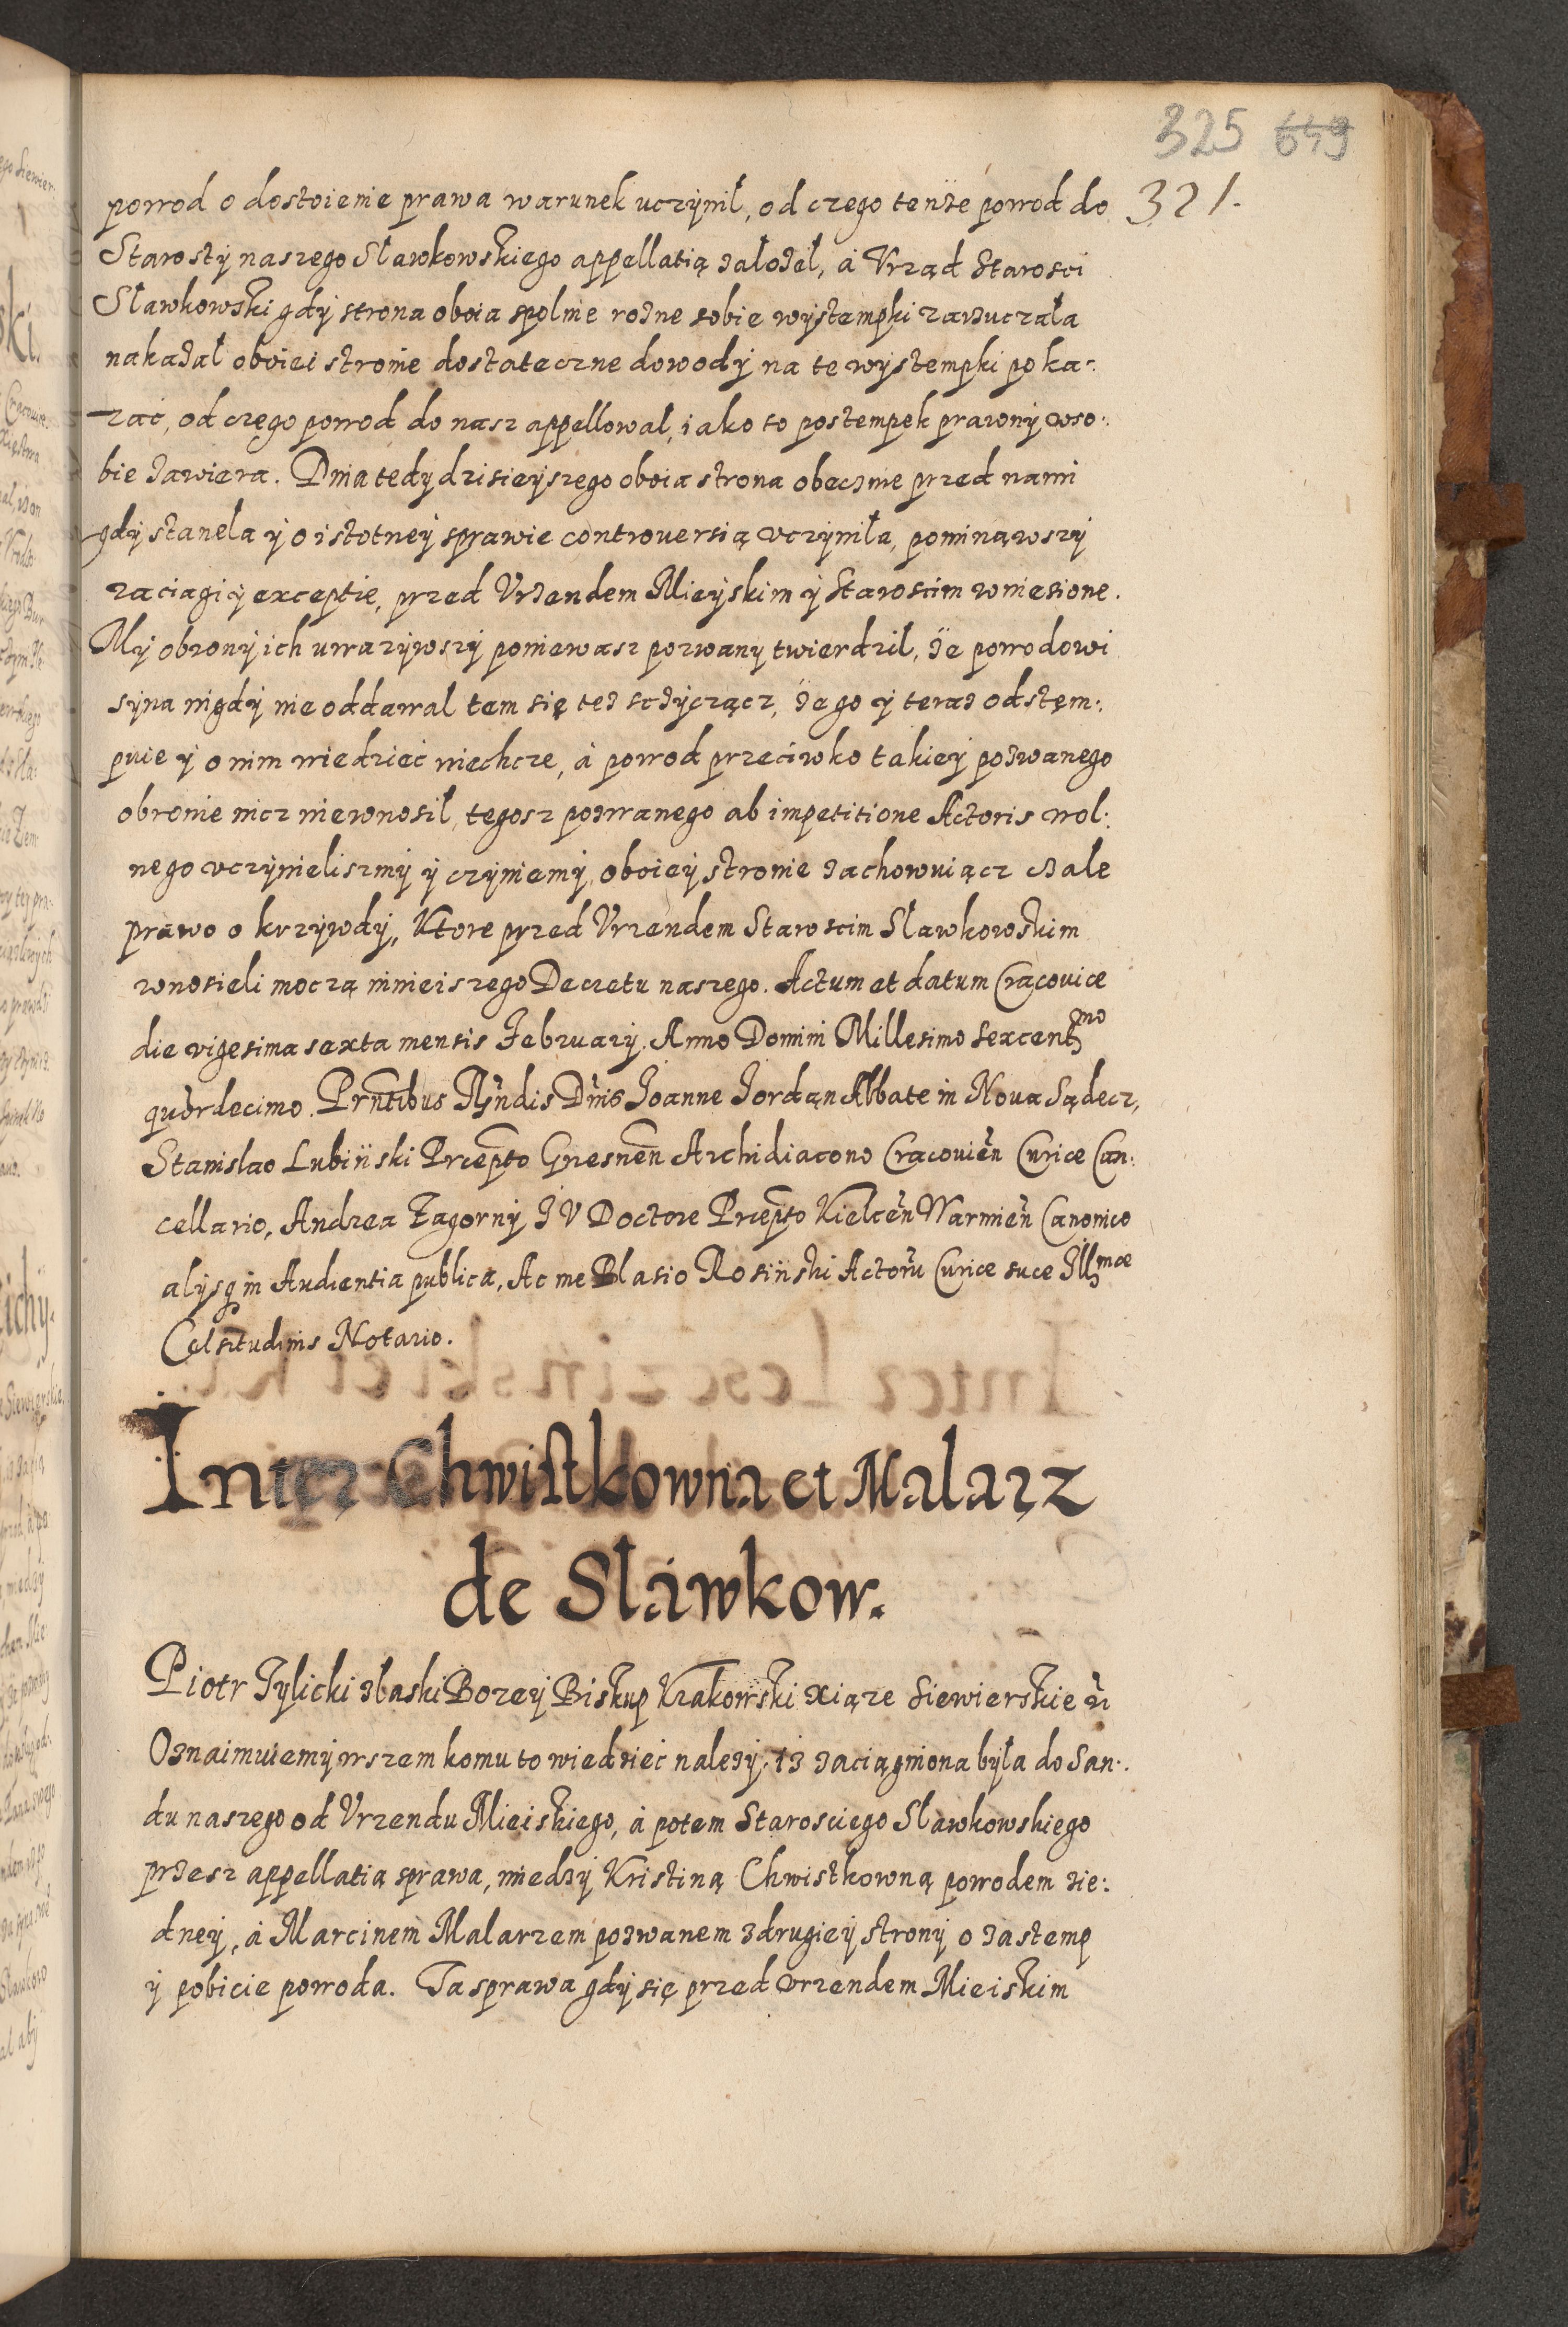 325 649
321.
powod o dostoienie prawa warunek uczynił, od czego tenże powod do
Starosty naszego Sławkowskiego appellatią założeł, á Vrząd Starosci
Sławkowski gdy strona oboia spolnie rożne sobie wystempki zarzuczała
nakazał oboiei stronie dostateczne dowody na te wystempki poka-:
zać, od czego powod do nasz appellowal, iako to postempek prawny wso-:
bie zawiera. Dnia tedy dzisieyszego oboia strona obecznie przed nami
gdy stanela y o istotney sprawie controuersią vczyniła, pominąwszy
zaciagi y exceptie, przed Vrzendem Mieyskim y Staroscim wniesione.
My obrony ich uwazywszy poniewasz pozwany twierdzil, że powodowi
syna nigdy nie oddawal tam się też sczyczącz, że go y teraz odstęm-:
puie y o nim wiedzieć niechcze, á powod przeciwko takiey pozwanego
obronie nicz niewnosił, tegosz pozwanego ab impetitione Actoris wol-:
nego vczynieliszmy y czyniemy, oboiey stronie zachowuiącz czale
prawo o krzywdy, Ktore przed Vrzendem Staroscim Sławkowskim
wnosieli moczą ninieiszego Decretu naszego. Actum et datum Cracouiæ
die vigesima sexta mensis February Anno Domini Millesimo Sexcentmo
quordecimo. Prntibus Rndis Dnis Ioanne Iordąn Abbate in Noua Sądecz,
Stanislao Lubiński Præpto Gnesnen Archidiacono Cracouien Curiæ Can-:
cellario, Andrea Zagorny I V Doctore Præpto Kielcen Warmien Canonico
alysq in Audientia publica, Ac me Blasio Rosiński Actoru Curiæ suæ Illmæ
Celsitudinis Notario.
Inter Chwistkowna et Malarz
de Sláwkow.
Piotr Tylicki złaski Bozey Biskup Krakowski xiąze Siewierskie
Oznaimuiemy wszem komu to wiedzieć należy, iż zaciągniona była do San-:
du naszego od Vrzendu Mieiskiego, á potem Starosciego Sławkowskiego
przesz appellatią sprawa, miedzy Kristiną Chwistkowną powodem zie-:
dney, á Marcinem Malarzem pozwanem z drugiey strony o zastemp
y pobicie powoda. Ta sprawa gdy się przed vrzendem Mieiskim